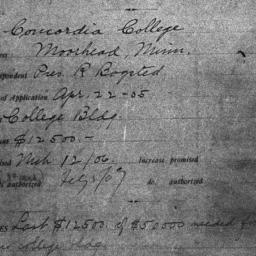 Concordia College
Moorhead, Minn.
pondent Pres. R Bogstad
of Application Apr. 22-05
College Bldg.
nt $12500.-
ised Mch 12/06. Increase promised
authorized Feb 8/07 do. authorized
ES Last $12500 of $50000 needed for
college bldg.